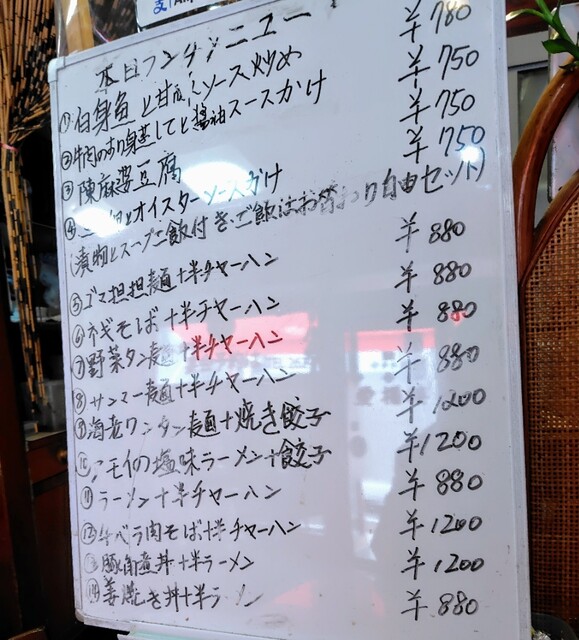 本日ランチメニュー
①白身魚と甘 ソース炒め ¥780
②牛肉のあり身蒸してと醤油スースかけ ¥750
③陳麻婆豆腐 ¥750
④ とオイスターソースかけ ¥750
(漬物とスープご飯付き、ご飯はお替わり自由セット)
⑤ゴマ担担麺+半チャーハン ¥880
⑥ネギそば+半チャーハン ¥880
⑦野菜タン麺+半チャーハン ¥880
⑧サンマー麺+半チャーハン ¥880
⑨海老ワンタン麺+焼き餃子 ¥1200
⑩ モイの塩味ラーメン+餃子 ¥1200
⑪ラーメン+半チャーハン ¥880
⑫牛バラ肉そば+半チャーハン ¥1200
⑬豚角煮丼+半ラーメン ¥1200
⑭姜焼き丼+半ラーメン ¥880